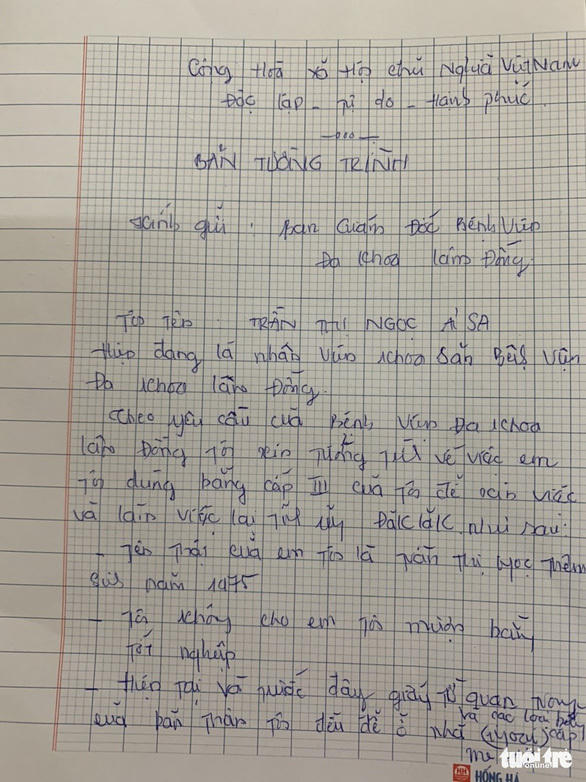 Cộng Hoà Xã Hội chủ Nghĩa Việt Nam
Độc lập - Tự do - Hạnh phúc
BẢN TƯỜNG TRÌNH
Kính gửi: Ban Giám Đốc Bệnh Viện
Đa Khoa Lâm Đồng.
Tôi tên: TRẦN THỊ NGỌC ÁI SA
Hiện đang là nhân viên khoa Sản Bệnh Viện
Đa khoa Lâm Đồng.
Theo yêu cầu của Bệnh viện Đa khoa
Lâm Đồng Tôi xin Tường Trình về việc em
Tôi dùng bằng cấp III của Tôi để xin việc
và làm việc tại Tỉnh ủy ĐăkLăk như sau:
- Tên Thật của em Tôi là Trần Thị Ngọc Thêm
Sinh năm 1975
- Tôi không cho em Tôi mượn bằng
Tốt nghiệp
- Hiện Tại và trước đây giấy Tờ quan trọng
và các loại bằng
của bản Thân Tôi đều để ở nhà
tuổi trẻ
online
HỒNG HÀ